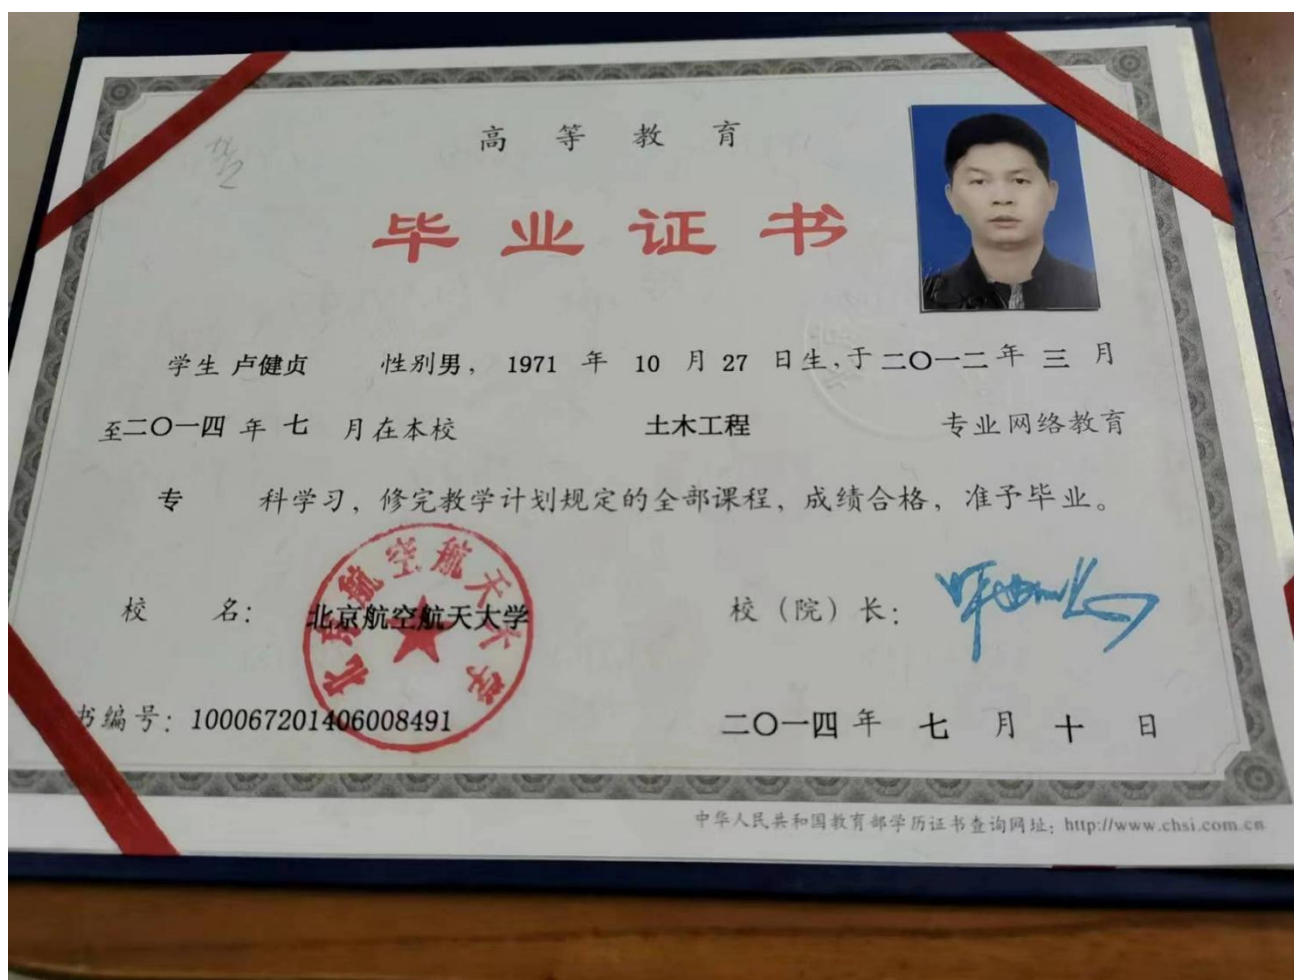 高等教育
毕业证书
学生 卢健贞 性别男，1971 年 10 月 27 日生，于二〇一二年 三 月
至二〇一四 年 七 月在本校 土木工程 专业网络教育
专 科学习，修完教学计划规定的全部课程，成绩合格，准予毕业。
校 名： 北京航空航天大学 校（院）长：
北京航空航天大学
书编号：100067201406008491 二〇一四年 七 月 十 日
中华人民共和国教育部学历证书查询网址：http://www.chsi.com.cn